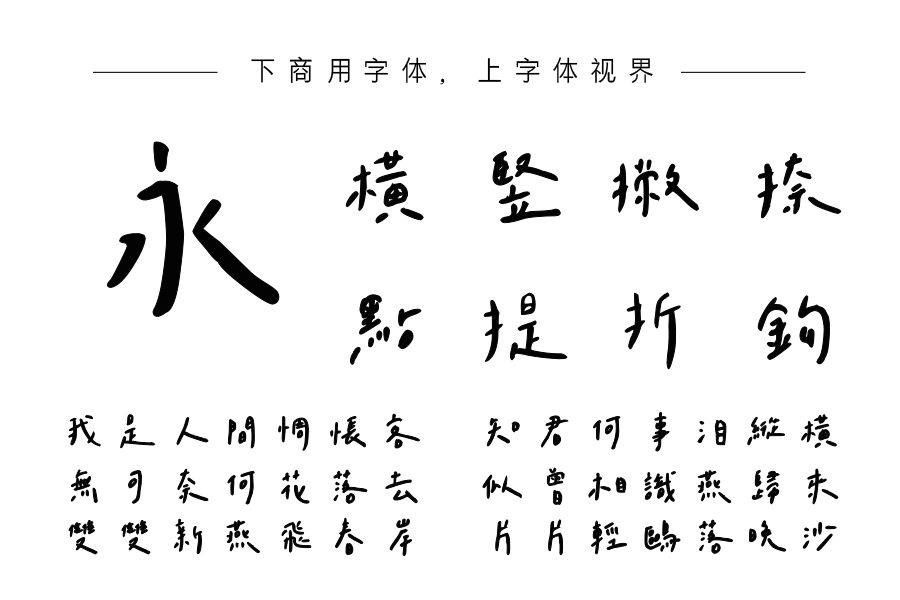 下商用字体，上字体视界
永
橫 竪 撇 捺
點 提 折 鉤
我是人間惆悵客 知君何事泪縱橫
無可奈何花落去 似曾相識燕歸來
雙雙新燕飛春岸 片片輕鷗落晚沙